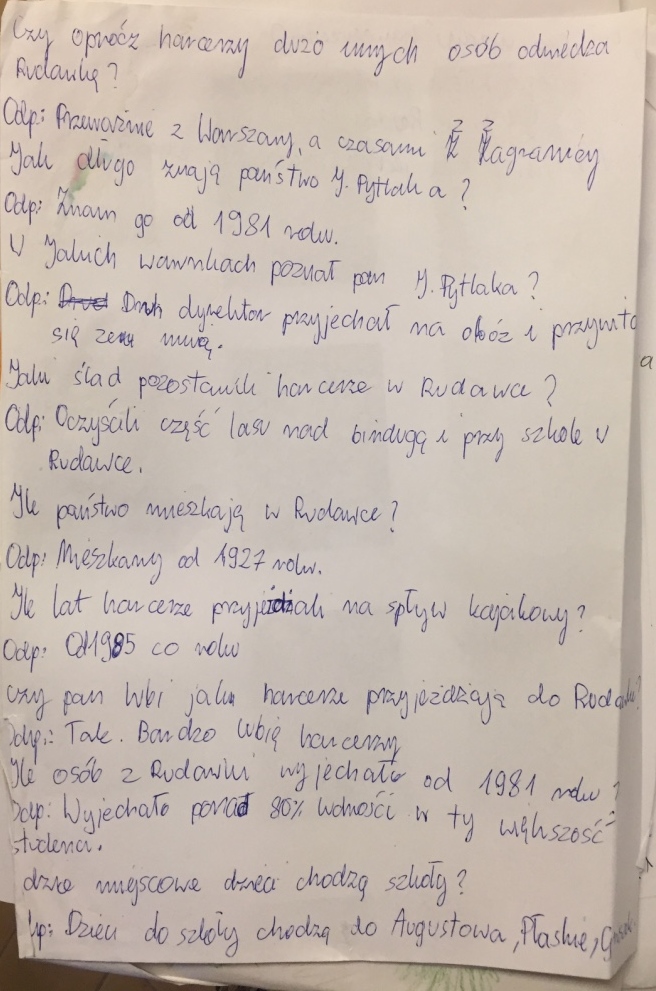 Czy oprócz harcerzy dużo innych osób odwiedza
Rudawkę?
Odp: Przeważnie z Warszawy, a czasami z zagranicy
Jak długo znają państwo J. Pytlaka?
Odp: Znam go od 1981 roku.
W Jakich warunkach poznał pan J. Pytlaka?
Odp: Druh dyrektor przyjechał na obóz i przywitał
się ze mną.
Jaki ślad pozostawili harcerze w Rudawce?
Odp: Oczyścili część lasu nad bindugą i przy szkole w
Rudawce.
Ile państwo mieszkają w Rudawce?
Odp: Mieszkamy od 1927 roku.
Ile lat harcerze przyjeżdżali na spływ kajakowy?
Odp: Od 1985 co roku
Czy pan lubi jak harcerze przyjeżdżają do Rudawki?
Odp: Tak. Bardzo lubię harcerzy
Ile osób z Rudawki wyjechało od 1981 roku?
Odp: Wyjechało ponad 80% ludności w ty większość
studenci.
dzie miejscowe dzieci chodzą szkoły?
Odp: Dzieci do szkoły chodzą do Augustowa, Płaskie,